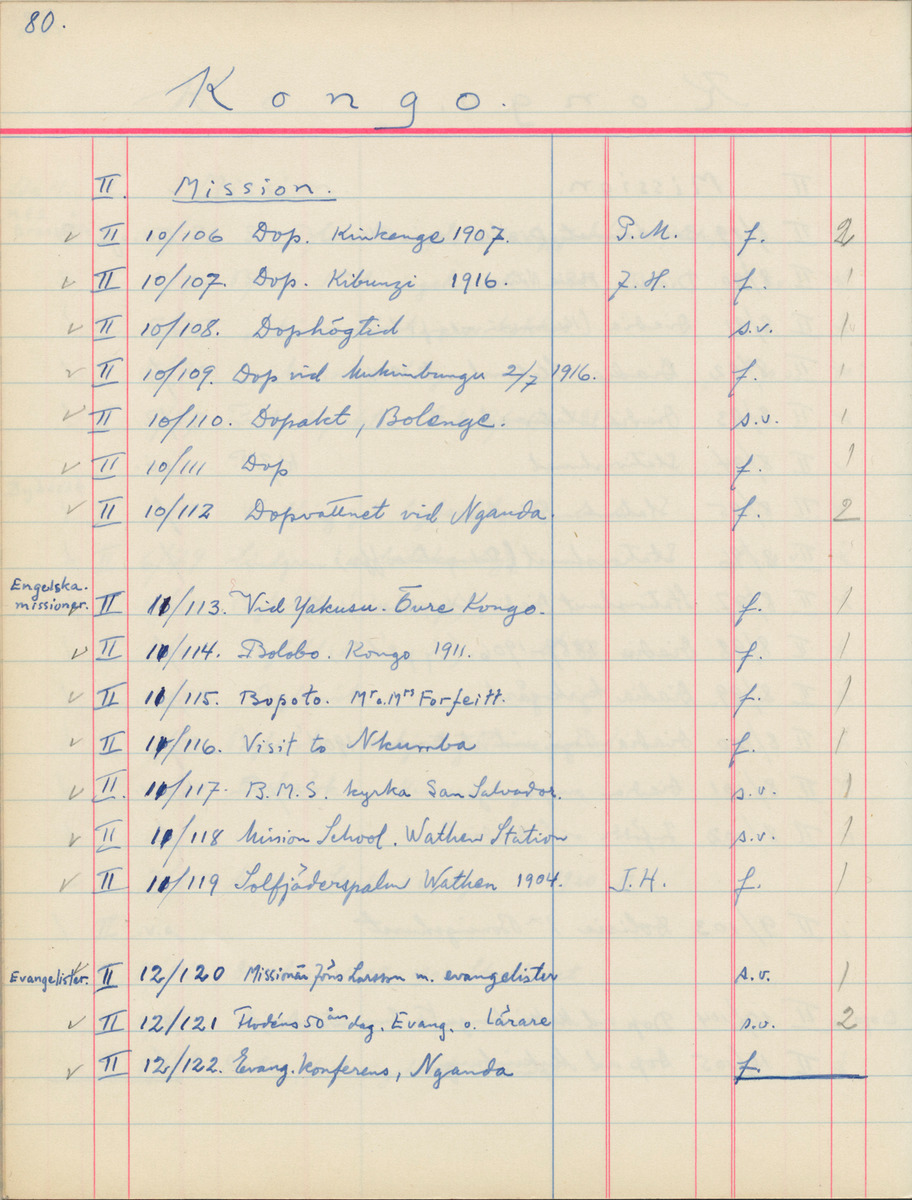 80.
Kongo.
II. Mission.
✓ II 10/106 Dop. Kinkenge 1907. P.M. f. 2
✓ II 10/107. Dop. Kibunzi 1916. J.H. f. 1
✓ II 10/108. Dophögtid s.v. 1
✓ II 10/109. Dop vid Mukimbungu 2/7 1916. f. 1
✓ II 10/110. Dopakt, Bolenge. s.v. 1
✓ II 10/111 Dop f. 1
✓ II 10/112 Dopvattnet vid Nganda. f. 2
Engelska missioner. II 11/113. Vid Yakusu. Övre Kongo. f. 1
✓ II 11/114. Bolobo. Kongo 1911. f. 1
✓ II 11/115. Bopoto. Mr o. Mrs Forfeitt. f. 1
✓ II 11/116. Visit to Nkumba f. 1
✓ II. 11/117. B.M.S. kyrka San Salvador. s.v. 1
✓ II 11/118 Mission School. Wathen Station s.v. 1
✓ II 11/119 Solfjäderspalm Wathen 1904. J.H. f. 1
Evangelister. ✓ II 12/120 Missionär Jöns Larsson m. evangelister s.v. 1
✓ II 12/121 Flodéns 50 års dag. Evang. o. Lärare s.v. 2
✓ II 12/122. Evang. konferens, Nganda f.